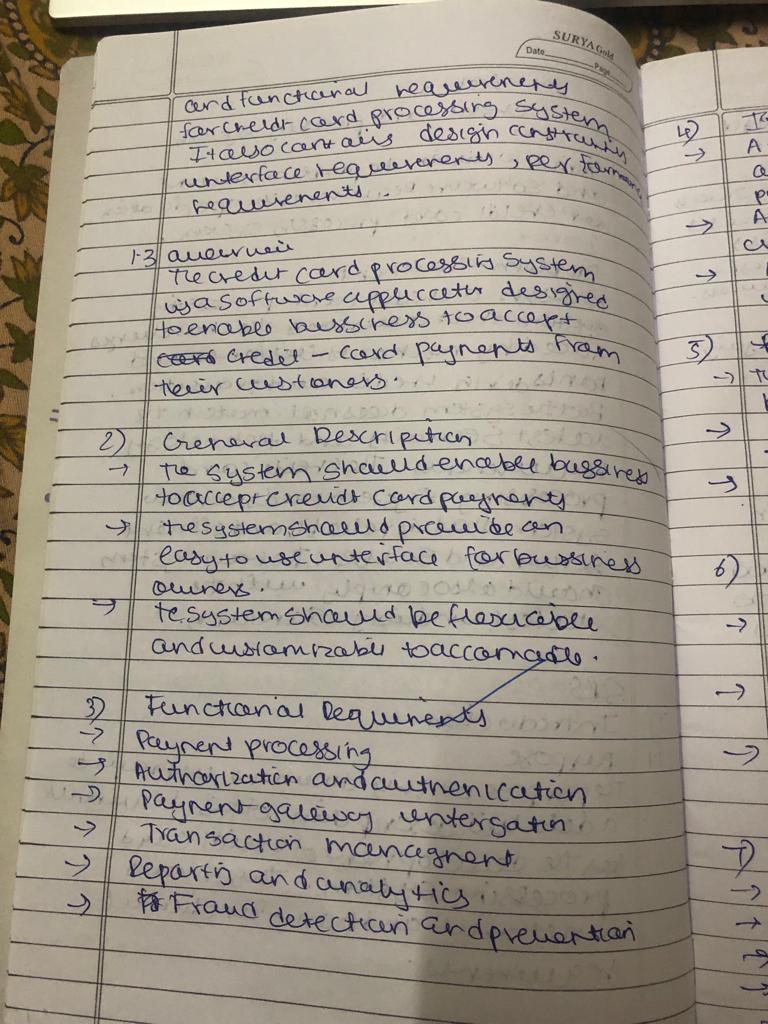 SURYA Gold
Date
Page
and functional requirements
for credit card processing system
It also contains design constraints
interface requirements, performance
requirements.
1.3 overview
The credit card processing system
is a software application designed
to enable bussiness to accept
credit - card payments from
their customers.
2) General Description
→ The system should enable bussiness
to accept credit card payments
→ the system should provide an
easy to use interface for bussiness
owners.
→ te system should be flexicible
and customizable to accomadte.
3) Functional Requirements
→ Payment processing
→ Authorization and authenication
→ Payment gateway intergation
→ Transaction managment
→ Reportis and analytics.
→ Fraud detection and prevention
4) I
→ A
a
p
→ A
cu
→
5)
→ te
→
→
6)
→
→
→
7)
→
→
→
→